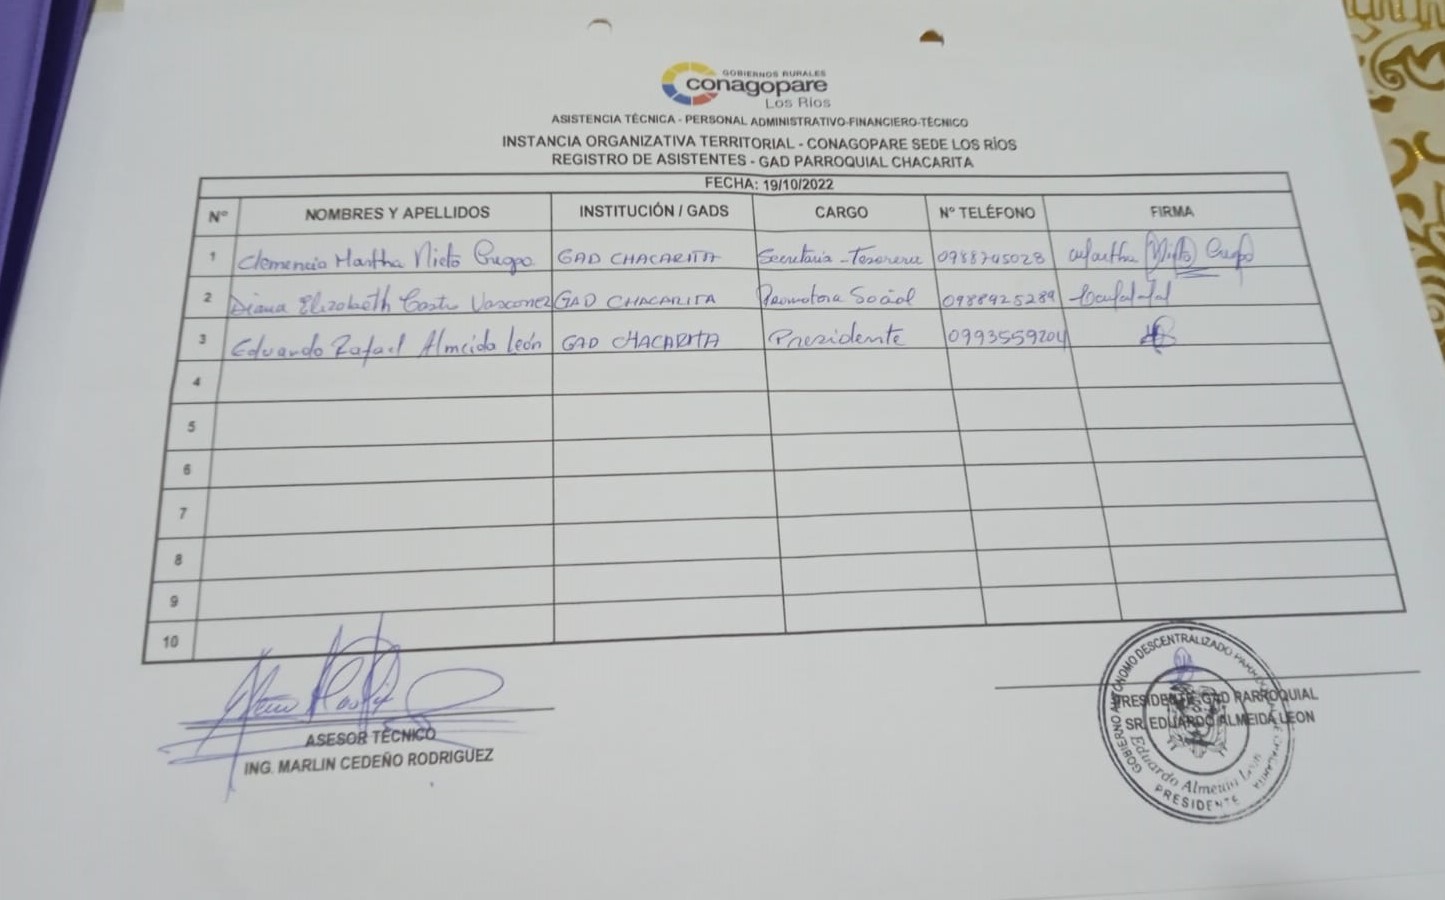 GOBIERNOS RURALES
conagopare
Los Ríos
ASISTENCIA TÉCNICA - PERSONAL ADMINISTRATIVO-FINANCIERO-TÉCNICO
INSTANCIA ORGANIZATIVA TERRITORIAL - CONAGOPARE SEDE LOS RÍOS
REGISTRO DE ASISTENTES - GAD PARROQUIAL CHACARITA
FECHA: 19/10/2022
Nº NOMBRES Y APELLIDOS INSTITUCIÓN / GADS CARGO Nº TELÉFONO FIRMA
1 Clemencia Martha Nieto Crespo GAD CHACARITA Secretaria - Tesorera 0988745028 Nieto Crespo
2 Diana Elizabeth Castro Vasconez GAD CHACARITA Promotora Social 0988925289
3 Eduardo Rafael Almeida León GAD CHACARITA Presidente 0993559204
4
5
6
7
8
9
10
ASESOR TÉCNICO
ING. MARLIN CEDEÑO RODRIGUEZ
PRESIDENTE GAD PARROQUIAL
SR. EDUARDO ALMEIDA LEON
GOBIERNO AUTÓNOMO DESCENTRALIZADO
Eduardo Almeida León
PRESIDENTE